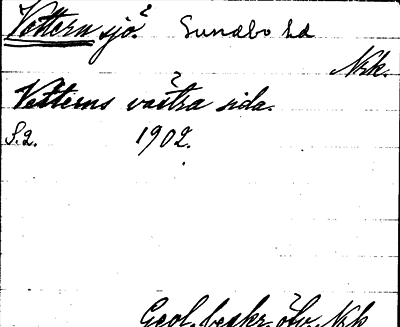 Vettern sjö. Sundbo hd
Nrk.
Vetterns västra sida.
S.2. 1902.
Geol. beskr. öfv. Nrk